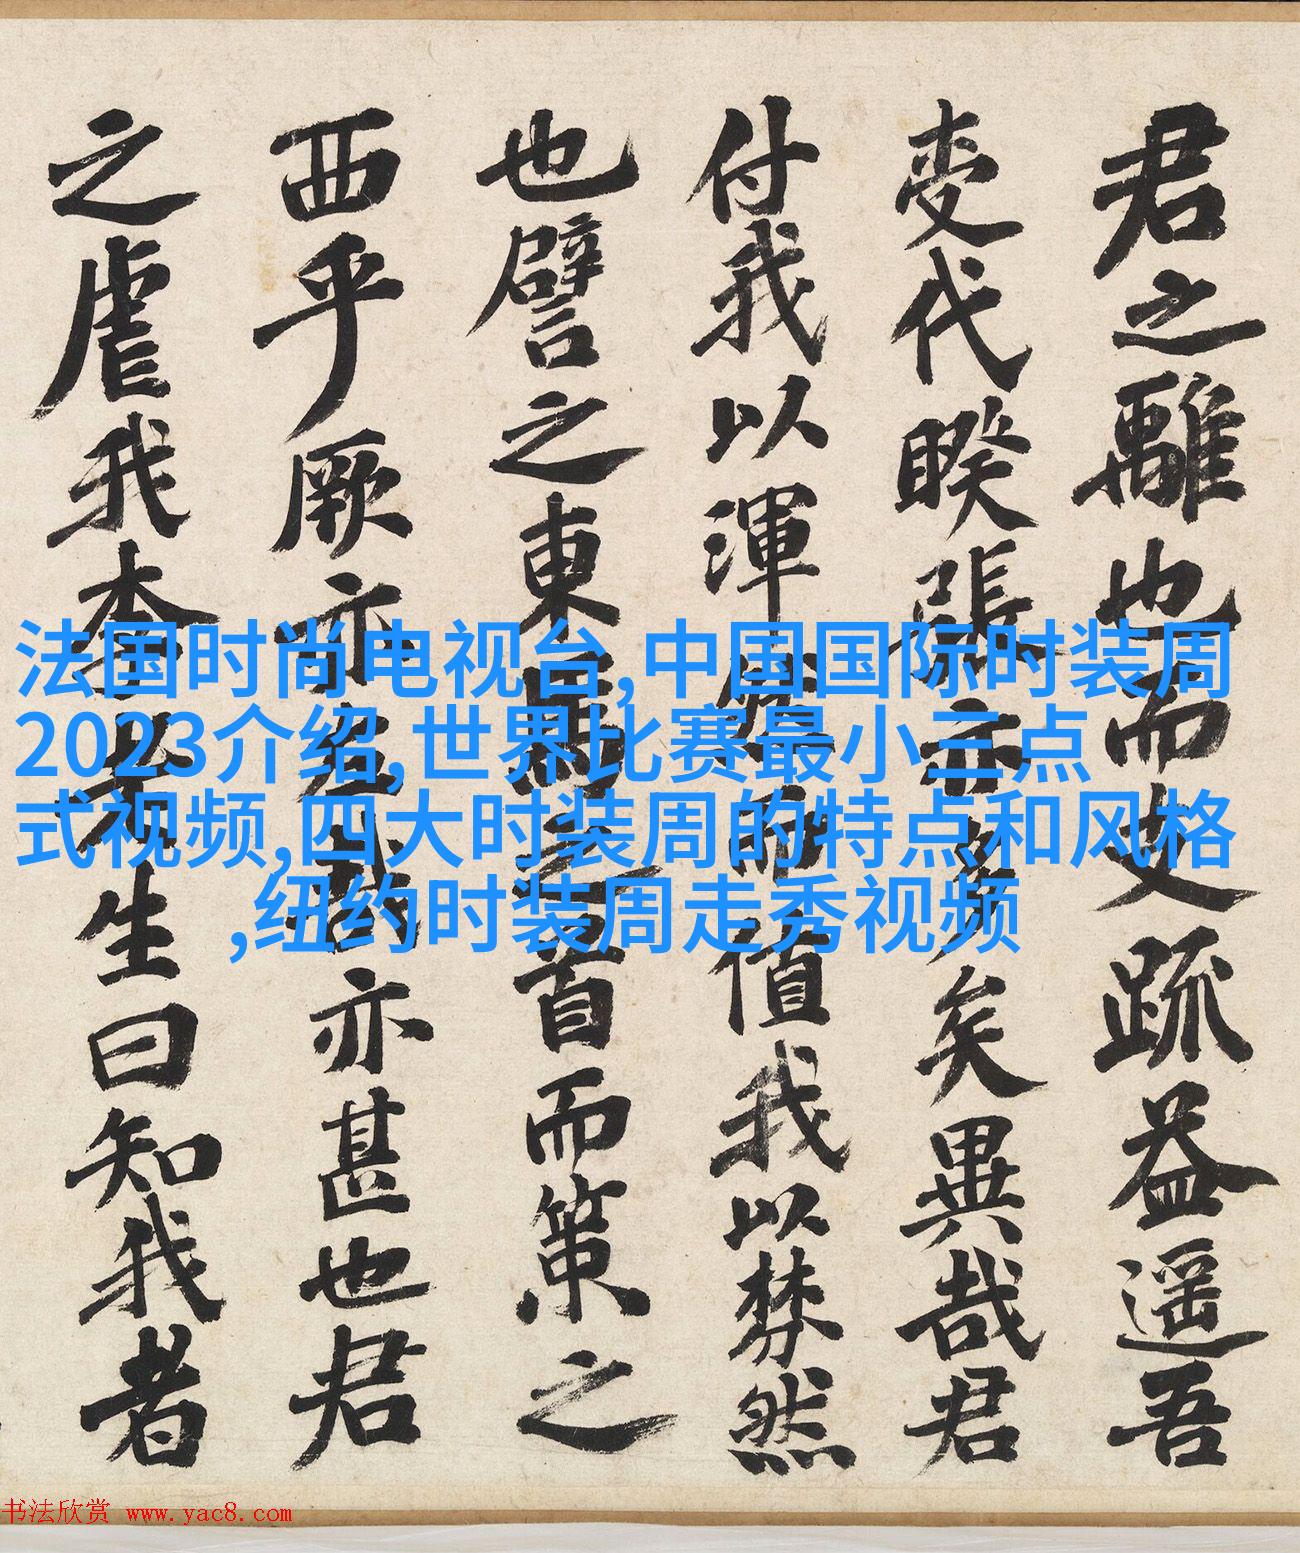 君之離也而疏益遥吾
代睽張亦矣異哉君
付我以渾而值我以棼然
也譬之東之首而策之
西乎厥亦亦甚也君
之虐我生曰知我者
法国时尚电视台,中国国际时装周
2023介绍,世界比赛最小三点
式视频,四大时装周的特点和风格
,纽约时装周走秀视频
书法欣赏 www.yac8.com